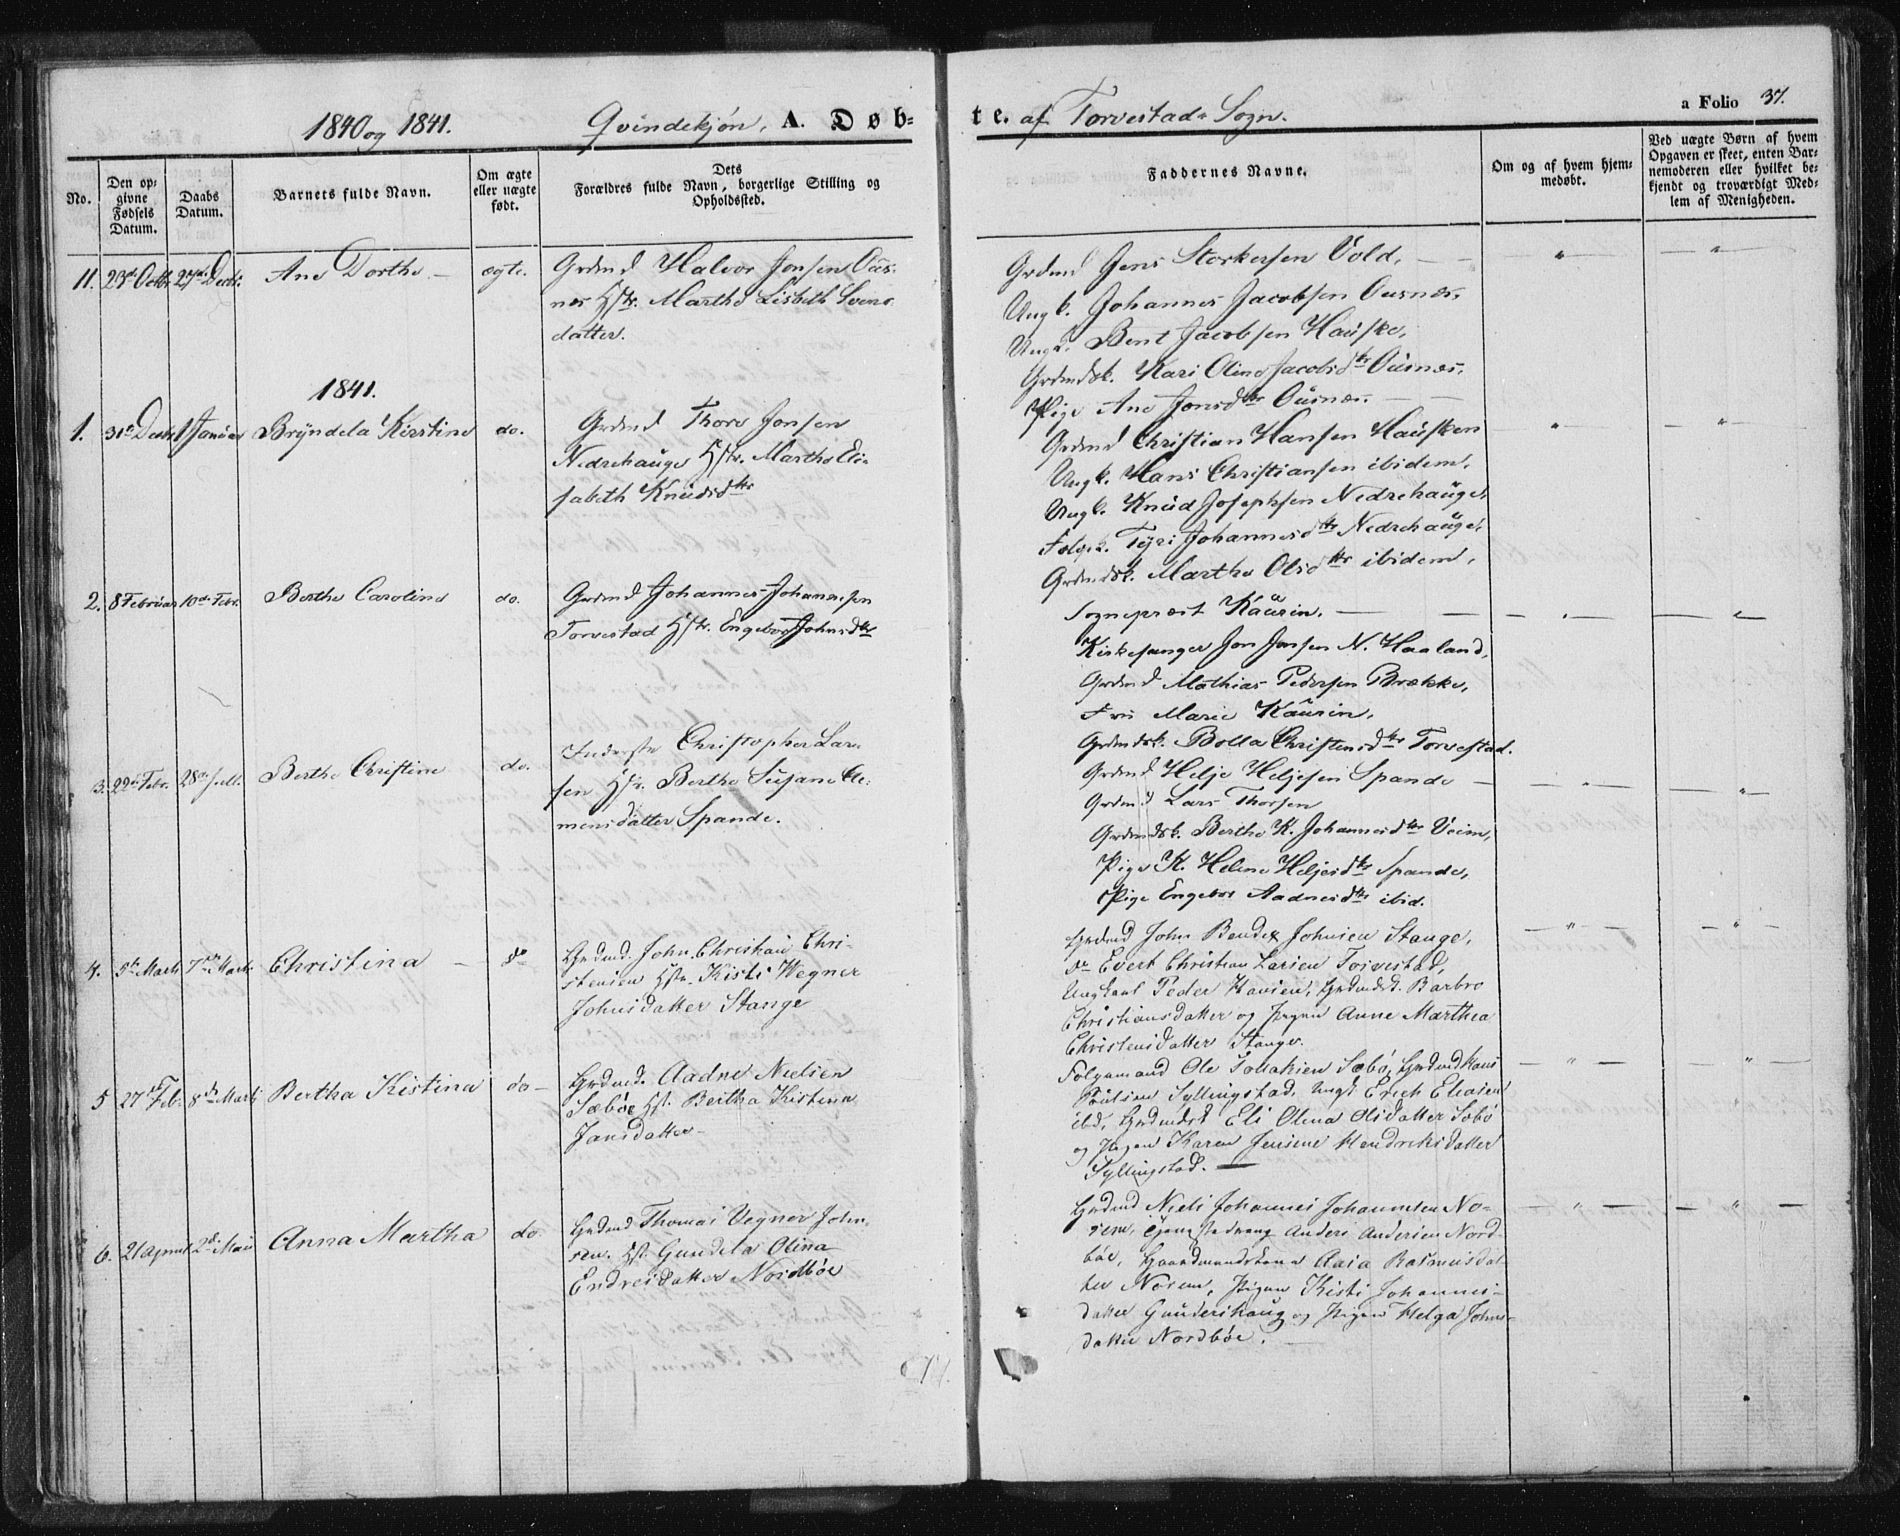 1840 og 1841. Qvindekjøn. A. Døb-
te. af Torvestad Sogn.
a Folio 37.
No.
Den op-
givne
Fødsels
Datum.
Daabs
Datum.
Barnets fulde Navn.
Om ægte
eller uægte
født.
Dets
Forældres fulde Navn, borgerlige Stilling og
Opholdssted.
Faddernes Navne.
Om og af hvem hjem-
medøbt.
Ved uægte Børn af hvem
Opgaven er skeet, enten Bar-
nemoderen eller hvilket be-
kjendt og troværdigt Med-
lem af Menigheden.
11. 23de Octbr. 27de Decbr. Ane Dorthe ægte.
Grdmd Halvor Jonsen Ous-
nes Hstr. Marthe Lisbeth Svens
datter.
Grdmd Jens Storkersen Vold,
Ungk. Johannes Jacobsen Ousnes,
Ungk. Bent Jacobsen Hauske,
Grdmdsk. Kari Oline Jacobsdtr Ousnes,
Pige Ane Jonsdtr Ousnes.
1841.
1. 31te Decbr 1 Januar Bryndela Kirstine do.
Grdmd Thore Jonsen
Nedrehauge Hstr. Marthe Eli-
sabeth Knudsdtr
Grdmd Christian Hansen Hausken
Ungk. Hans Christiansen ibidem,
Ungk. Knud Josephsen Nedrehauge,
Folgek. Tyri Johannesdtr Nedrehauge,
Grdmdsk. Marthe Olsdtr ibidem,
2. 8 Februar 10de Febr. Berthe Caroline do.
Grdmd Johannes Johannesen
Torvestad Hstr. Engebor Johnsdtr
Sogneprest Kaurin.
Kirkesanger Jon Jonsen N. Haaland,
Grdmd Mathias Pedersen Brække,
Fru Marie Kaurin,
Grdmdsk. Bolla Christensdtr Torvestad.
3. 22de Febr. 28de s. M. Berthe Christine do.
Inderste Christopher Lar-
sen Hstr. Berthe Susane Cle-
mensdatter Spande.
Grdmd Helje Heljesen Spande
Grdmd Lars Thorsen
Grdmdsk. Berthe K. Johannesdtr Veim,
Pige K. Helene Heljesdtr Spande,
Pige Engebor Aadnesdtr ibid.
4. 5te Marts 7de Marts Christina do
Grdmd. John Christian Chri-
stensen Hstr. Kisti Wegner
Johnsdatter Stange
Grdmd John Bendix Johnsen Stange,
do Evert Christian Larsen Torvestad,
Ungkarl Peder Hansen, Grdmdsk. Barbro
Christiansdatter og Pigen Anne Marthea
Christensdatter Stange.
5 27de Feb. 8de Marts Bertha Kistina do
Grdmd. Aadne Nielsen
Sæbøe Hst. Bertha Kistina
Jansdatter
Folgemand Ole Tollaksen Sæbø, Grdmd Hans
Poulsen Syllingstad, Ungk Erich Eliasen
ibd, Grdmdsk Eli Olena Olsdatter Sæbø
og Pigen Karen Jensine Hendriksdatter
Syllingstad.
6. 21 April 2de Mai Anna Martha do
Grdmd Thomas Vegner John-
sen. Hst. Gundela Olina
Endresdatter Nordbøe
Grdmd Niels Johannes Johannesen No-
rem, Tjenstedreng Anders Andersen Nord-
bøe, Gaardmandskone Aasa Rasmusdat-
ter Norem, Pigen Kisti Johannes-
datter Gundershaug og Pigen Helga Johns-
datter Nordbøe.